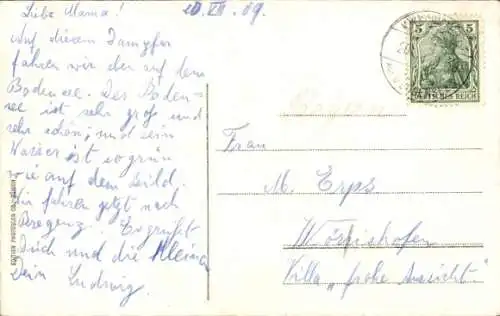 Liebe Mama! 20.VII.09.
Auf diesem Dampfer
fahren wir über auf dem
Bodensee. Der Boden-
see ist sehr groß und
sehr schön; und sein
Wasser ist so grün
wie auf dem Bild.
Wir fahren jetzt nach
Bregenz. Es grüßt
Dich und die Kleinen
dein Ludwig.
5 5
DEUTSCHES REICH
Frau
M. Erps
Wörishofen
Villa "frohe Aussicht"